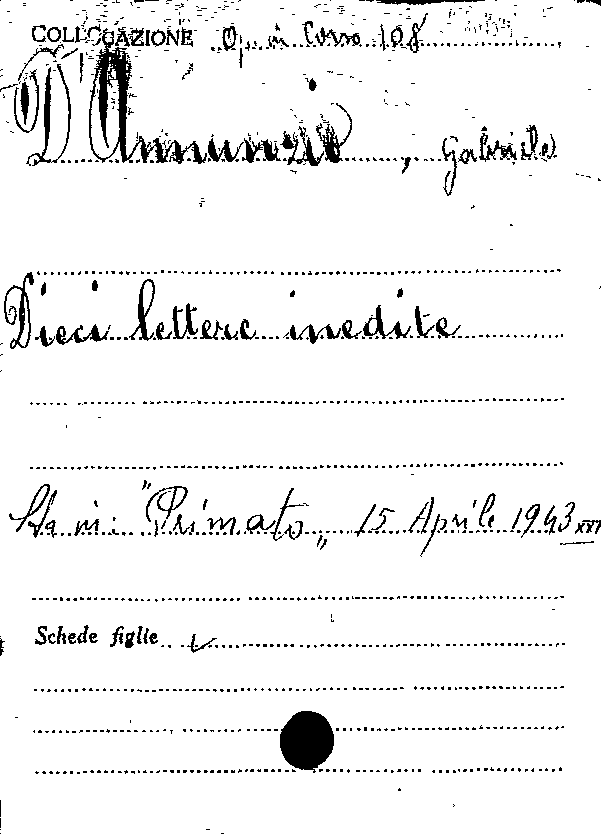 COLLOCAZIONE Op. in Corso 108
D'Annunzio, Gabriele
Dieci lettere inedite
Sta in: "Primato„ 15 Aprile 1943 XXI
Schede figlie